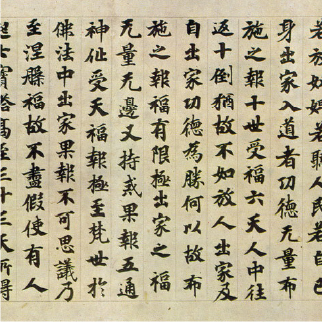 若放奴婢若聽人民若自己
身出家入道者功德无量布
施之報十世受福六天人中往
返十倒猶故不如放人出家及
自出家功德為勝何以故布
施之報福有限極出家之福
无量无邊又持戒果報五通
神仙受天福報極至梵世於
佛法中出家果報不可思議乃
至涅槃福故不盡假使有人
起七寶塔高至三十三天所得